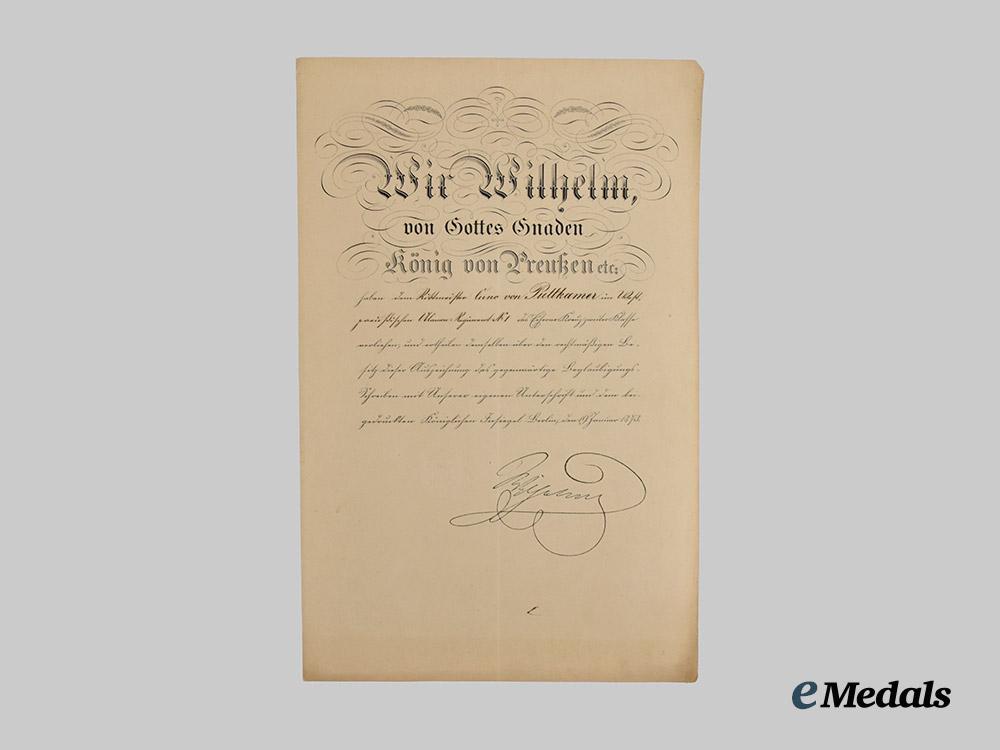 Wir Wilhelm,
von Gottes Gnaden
König von Preußen etc:
haben dem Rittmeister Cuno von Puttkamer im Westpreußischen
Ulanen-Regiment No 1 das Eiserne Kreuz zweiter Klasse
verliehen, und ertheilen demselben über den rechtmäßigen Be-
sitz dieser Auszeichnung das gegenwärtige Beglaubigungs-
Schreiben mit Unserer eigenen Unterschrift und dem bei-
gedruckten Königlichen Insiegel. Berlin, den Januar 1873.
Wilhelm
eMedals